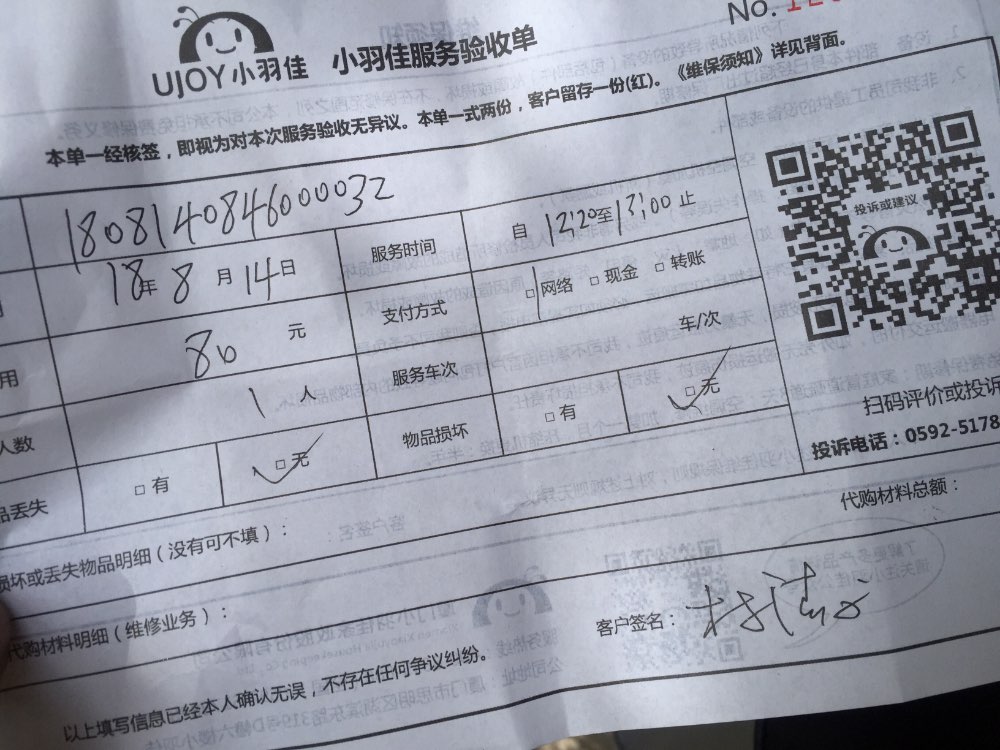 No. 12
UJOY小羽佳 小羽佳服务验收单
本单一经核签，即视为对本次服务验收无异议。本单一式两份，客户留存一份(红)。《维保须知》详见背面。
180814084600032
18年8月14日 服务时间 自12:20至13:00止
80元 支付方式 □网络 □现金 □转账
用
1人 服务车次 车/次
人数
品丢失 □有 □无 物品损坏 □有 □无
投诉或建议
扫码评价或投诉
投诉电话：0592-5178
损坏或丢失物品明细（没有可不填）：
代购材料总额：
代购材料明细（维修业务）：
客户签名：
以上填写信息已经本人确认无误，不存在任何争议纠纷。